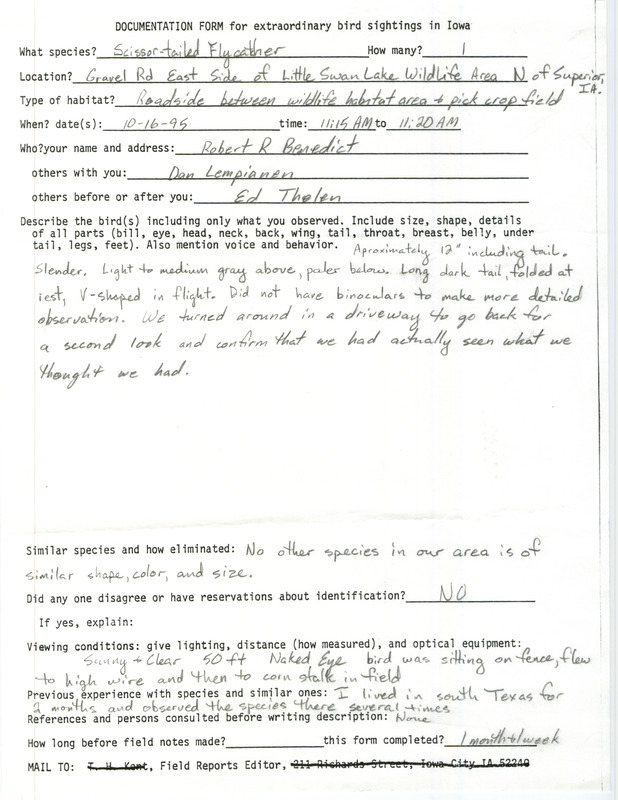 DOCUMENTATION FORM for extraordinary bird sightings in Iowa
What species? Scissor-tailed Flycather How many? 1
Location? Gravel Rd East Side of Little Swan Lake Wildlife Area N of Superior, IA.
Type of habitat? Roadside between wildlife habitat area + pick crop field
When? date(s): 10-16-95 time: 11:15 AM to 11:20 AM
Who?your name and address: Robert R Benedict
others with you: Dan Lempianen
others before or after you: Ed Tholen
Describe the bird(s) including only what you observed. Include size, shape, details
of all parts (bill, eye, head, neck, back, wing, tail, throat, breast, belly, under
tail, legs, feet). Also mention voice and behavior. Aproximately 12" including tail.
Slender. Light to medium gray above, paler below. Long dark tail, folded at
rest, V-shaped in flight. Did not have binoculars to make more detailed
observation. We turned around in a driveway to go back for
a second look and confirm that we had actually seen what we
thought we had.
Similar species and how eliminated: No other species in our area is of
similar shape, color, and size.
Did any one disagree or have reservations about identification? NO
If yes, explain:
Viewing conditions: give lighting, distance (how measured), and optical equipment:
Sunny + Clear 50 ft Naked Eye bird was sitting on fence, flew
to high wire and then to corn stalk in field
Previous experience with species and similar ones: I lived in south Texas for
2 months and observed the species there several times
References and persons consulted before writing description: None
How long before field notes made? this form completed? 1 month + 1 week
MAIL TO: T. H. Kent, Field Reports Editor, 211 Richards Street, Iowa City IA 52240